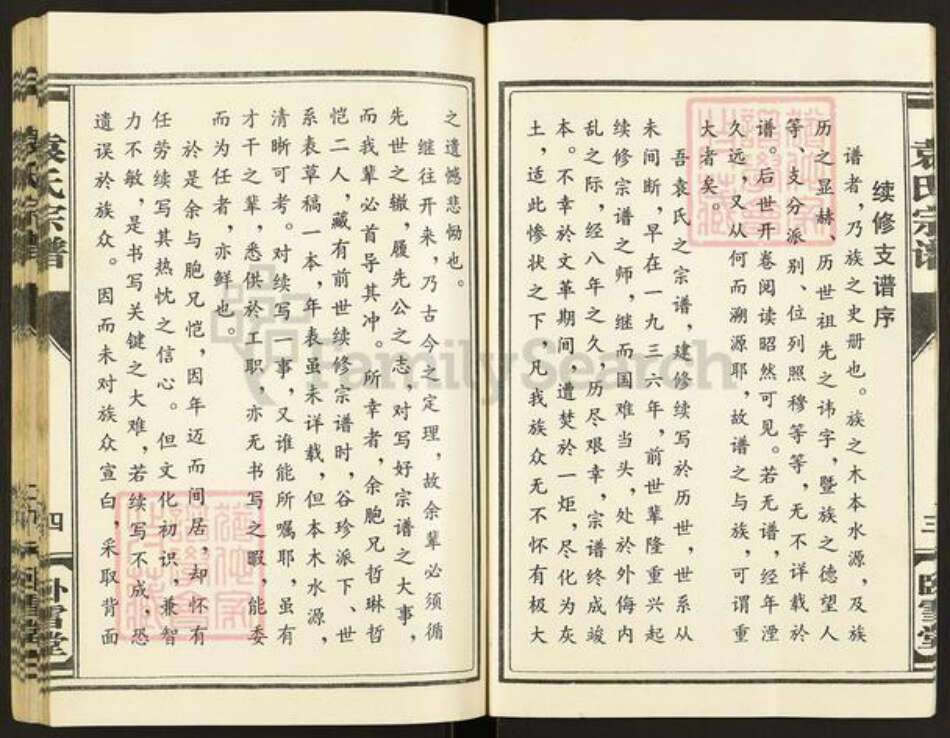 续修支谱序
谱者，乃族之史册也。族之木本水源，及族
历之显赫、历世祖先之讳字，暨族之德望人
等、支分派别、位列照穆等等，无不详载於
谱。后世开卷阅读昭然可见。若无谱，经年湮
久远，又从何而溯源耶，故谱之与族，可谓重
大者矣。
吾袁氏之宗谱，建修续写於历世，世系从
未间断，早在一九三六年，前世辈隆重兴起
续修宗谱之师，继而国难当头，处於外侮内
乱之际，经八年之久，历尽艰幸，宗谱终成竣
本。不幸於文革期间，遭焚於一炬，尽化为灰
土，适此惨状之下，凡我族众无不怀有极大
三
卧雪堂
袁氏宗谱
之遗憾悲恸也。
继往开来，乃古今之定理，故余辈必须循
先世之辙，履先公之志，对写好宗谱之大事，
而我辈必首导其冲。所幸者，余胞兄哲琳哲
恺二人，藏有前世续修宗谱时，谷珍派下、世
系表草稿一本，年表虽未详载，但本木水源，
清晰可考。对续写一事，又谁能所嘱耶，虽有
才干之辈，悉供於工职，亦无书写之暇，能委
而为任者，亦鲜也。
於是余与胞兄恺，因年迈而间居，却怀有
任劳续写其热忱之信心。但文化初识，兼智
力不敏，是书写关键之大难，若续写不成，恐
遗误於族众。因而未对族众宣白，采取背面
袁氏宗谱
四
卧雪堂
FamilySearch